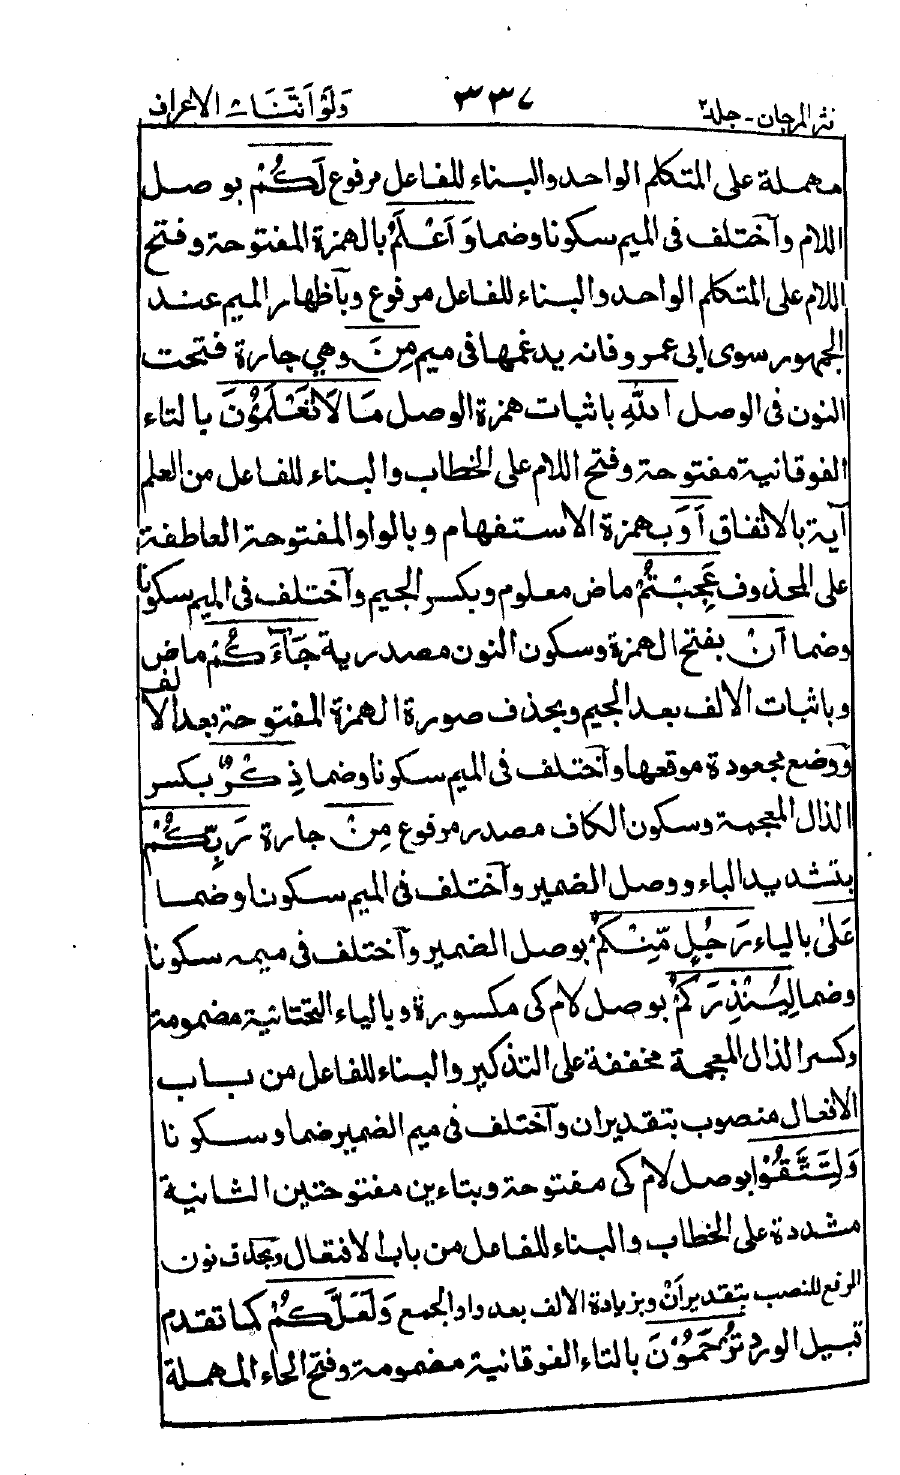 نثر المرجان - جلد ٢
٣٣٧
وَلَوْ اَنَّنَا الاعراف
مهملة على المتكلم الواحد والبناء للفاعل مرفوع لَكُمْ بوصل
اللام واختلف فى الميم سكونا وضما وَاَعْلَمُ بالهمزة المفتوحة وفتح
اللام على المتكلم الواحد والبناء للفاعل مرفوع وبآظهار الميم عند
الجمهور سوى ابى عمرو فانه يدغمها فى ميم مِنَ وهى جارة فتحت
النون فى الوصل اللهِ باثبات همزة الوصل مَا لَا تَعْلَمُوْنَ بالتاء
الفوقانية مفتوحة وفتح اللام على الخطاب والبناء للفاعل من العلم
آية بالاتفاق اَوَ بهمزة الاستفهام وبالواو المفتوحة العاطفة
على المحذوف عَجِبْتُمْ ماض معلوم وبكسر الجيم وآختلف فى الميم سكونا
وضما اَنْ بفتح الهمزة وسكون النون مصدرية جَآءَكُمْ ماض
وباثبات الالف بعد الجيم وبحذف صورة الهمزة المفتوحة بعد الالف
ووضع مجعودة موقعها وآختلف فى الميم سكونا وضما ذِكْرٌ بكسر
الذال المعجمة وسكون الكاف مصدر مرفوع مِنْ جارة رَبِّكُمْ
بتشديد الباء ووصل الضمير وآختلف فى الميم سكونا وضما
عَلٰى بالياء رَجُلٍ مِّنْكُمْ بوصل الضمير وآختلف فى ميمه سكونا
وضما لِيُنْذِرَكُمْ بوصل لام كى مكسورة وبالياء التحتانية مضمومة
وكسر الذال المعجمة مخففة على التذكير والبناء للفاعل من باب
الافعال منصوب بتقدير ان وآختلف فى ميم الضمير ضما وسكونا
وَلِتَتَّقُوْا بوصل لام كى مفتوحة وبتاءين مفتوحتين الثانية
مشددة على الخطاب والبناء للفاعل من باب الافتعال وبحذف نون
الرفع للنصب بتقدير اَنْ وبزيادة الالف بعد واو الجمع وَلَعَلَّكُمْ كما تقدم
قبيل الورد تُرْحَمُوْنَ بالتاء الفوقانية مضمومة وفتح الحاء المهملة